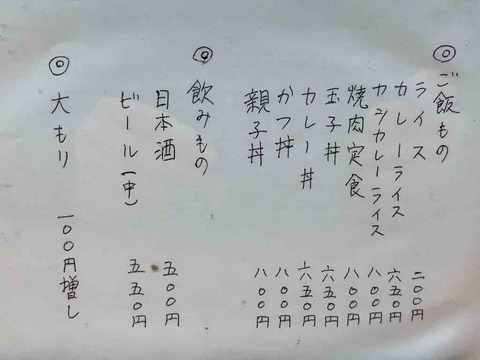 ◎ご飯もの
ライス 二〇〇円
カレーライス 六五〇円
カツカレーライス 八〇〇円
焼肉定食 八〇〇円
玉子丼 六五〇円
カレー丼 六五〇円
かつ丼 八〇〇円
親子丼 八〇〇円
◎飲みもの
日本酒 五〇〇円
ビール(中) 五五〇円
◎大もり 一〇〇円増し